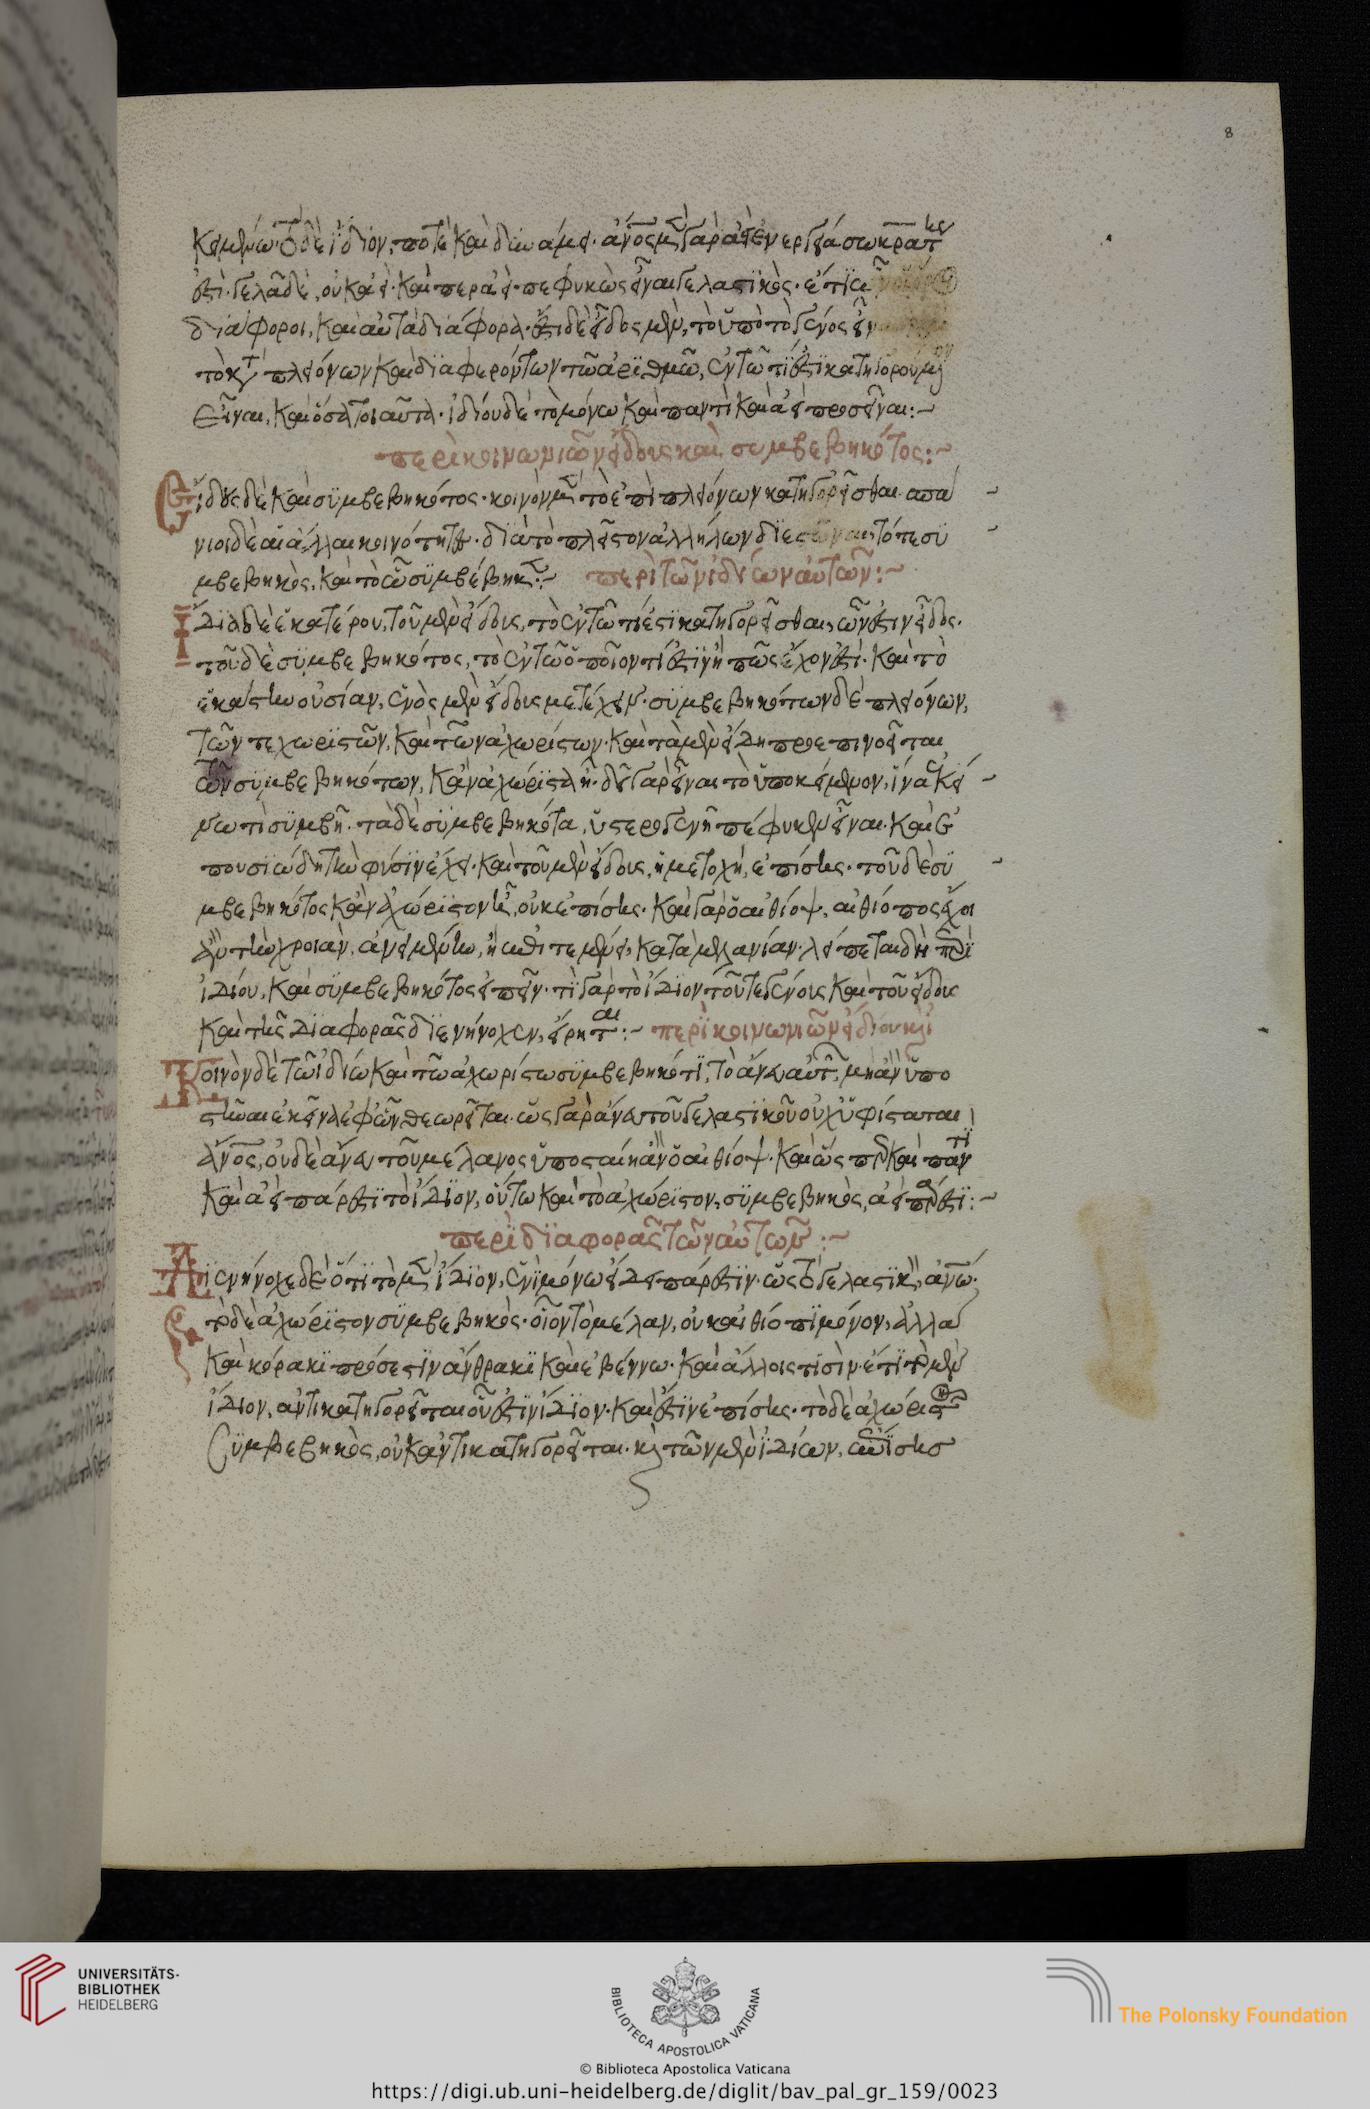 8
κειμένω· τὸ δὲ ἴδιον, ποτὲ καὶ δυνάμει· ἄν̅ος μὲν γὰρ ἀεὶ ἐνεργείᾳ σωκράτης
ἐστί· γελᾶ δὲ, οὐκ ἀεί· καίπερ ἀεὶ πεφυκὼς εἶναι γελαστικός· ἔτι ὧν οἱ ὅροι
διάφοροι, καὶ αὐτὰ διάφορα· ἔστι δὲ εἴδους μὲν, τὸ ὑπὸ τὸ γένος εἶναι
τὸ κατὰ πλειόνων καὶ διαφερόντων τῶ ἀριθμῶ, ἐν τῶ τί ἐστι κατηγορούμενον
εἶναι, καὶ ὅσα τοιαῦτα· ἰδίου δὲ τὸ μόνω καὶ παντὶ καὶ ἀεὶ προσεῖναι:~
περὶ κοινωνιῶν εἴδους καὶ συμβεβηκότος:~
Εἴδους δὲ καὶ συμβεβηκότος· κοινὸν μὲν τὸ ἐπὶ πλειόνων κατηγορεῖσθαι· σπά
νιοι δὲ αἱ ἄλλαι κοινότητες· διὰ τὸ πλεῖστον ἀλλήλων διεστάναι, τό τε συ
μβεβηκὸς, καὶ τὸ ὧ συμβέβηκε:~ περὶ τῶν ἰδίων αὐτῶν:~
Ἴδια δὲ ἑκατέρου, τοῦ μὲν εἴδους, τὸ ἐν τῶ τί ἐστι κατηγορεῖσθαι, ὧν ἐστιν εἶδος·
τοῦ δὲ συμβεβηκότος, τὸ ἐν τῶ ὁποῖον τί ἐστιν ἢ πῶς ἔχον ἐστί· καὶ τὸ
ἑκάστην οὐσίαν, ἑνὸς μὲν εἴδους μετέχειν· συμβεβηκότων δὲ πλειόνων,
τῶν τε χωριστῶν, καὶ τῶν ἀχωρίστων· καὶ τὰ μὲν εἴδη προεπινοεῖται
τῶν συμβεβηκότων, κἂν ἀχώριστα ἦ· δεῖ γὰρ εἶναι τὸ ὑποκείμενον, ἵνα ἐκεί
νω τὶ συμβῆ· τὰ δὲ συμβεβηκότα, ὑστερογενῆ πέφυκεν εἶναι· καὶ ἐ
πουσιώδη τὴν φύσιν ἔχει· καὶ τοῦ μὲν εἴδους, ἡ μετοχὴ, ἐπίσης· τοῦ δὲ συ
μβεβηκότος κἂν ἀχώριστον ἦ, οὐκ ἐπίσης· καὶ γὰρ ὁ αἰθίοψ, αἰθίοπος ἔχοι
ἂν τὴν χροιὰν, ἀνειμένην, ἢ ἐπιτεταμένην, κατὰ μελανίαν· λείπεται δὴ περὶ
ἰδίου, καὶ συμβεβηκότος εἰπεῖν· τί γὰρ τὸ ἴδιον τοῦ τε γένους καὶ τοῦ εἴδους
καὶ τῆς διαφορᾶς διενήνοχεν, εἴρηται:~ περὶ κοινωνιῶν ἰδίου καὶ
Κοινὸν δὲ τῶ ἰδίω καὶ τῶ ἀχωρίστω συμβεβηκότι, τὸ ἄνευ αὐτῶν, μὴ ἂν ὑπο
στῆναι ἐκεῖνα ἐφ' ὧν θεωρεῖται· ὡς γὰρ ἄνευ τοῦ γελαστικοῦ οὐχ ὑφίσταται
ἄν̅ος, οὐδὲ ἄνευ τοῦ μέλανος ὑποσταίη ἂν ὁ αἰθίοψ· καὶ ὥσπερ καὶ παντὶ
καὶ ἀεὶ πάρεστι τὸ ἴδιον, οὕτω καὶ τὸ ἀχώριστον, συμβεβηκὸς, ἀεὶ πάρεστι:~
περὶ διαφορᾶς τῶν αὐτῶν:~
Διενήνοχε δὲ ὅτι τὸ μὲν ἴδιον, ἑνὶ μόνω εἴδει πάρεστιν· ὡς τὸ γελαστικὸν, ἀνω·
τὸ δὲ ἀχώριστον συμβεβηκὸς· οἷον τὸ μέλαν, οὐκ αἰθίοπι μόνον, ἀλλὰ
καὶ κόρακι πρόσεστιν ἄνθρακι καὶ ἐβέννω· καὶ ἄλλοις τισίν· ἔτι τὸ μὲν
ἴδιον, ἀντικατηγορεῖται οὗ ἐστιν ἴδιον· καὶ ἐστὶν ἐπίσης· τὸ δὲ ἀχώριστον
συμβεβηκὸς, οὐκ ἀντικατηγορεῖται· καὶ τῶν μὲν ἰδίων, ἐπίσης
UNIVERSITÄTS-
BIBLIOTHEK
HEIDELBERG
BIBLIOTECA APOSTOLICA VATICANA
The Polonsky Foundation
© Biblioteca Apostolica Vaticana
https://digi.ub.uni-heidelberg.de/diglit/bav_pal_gr_159/0023